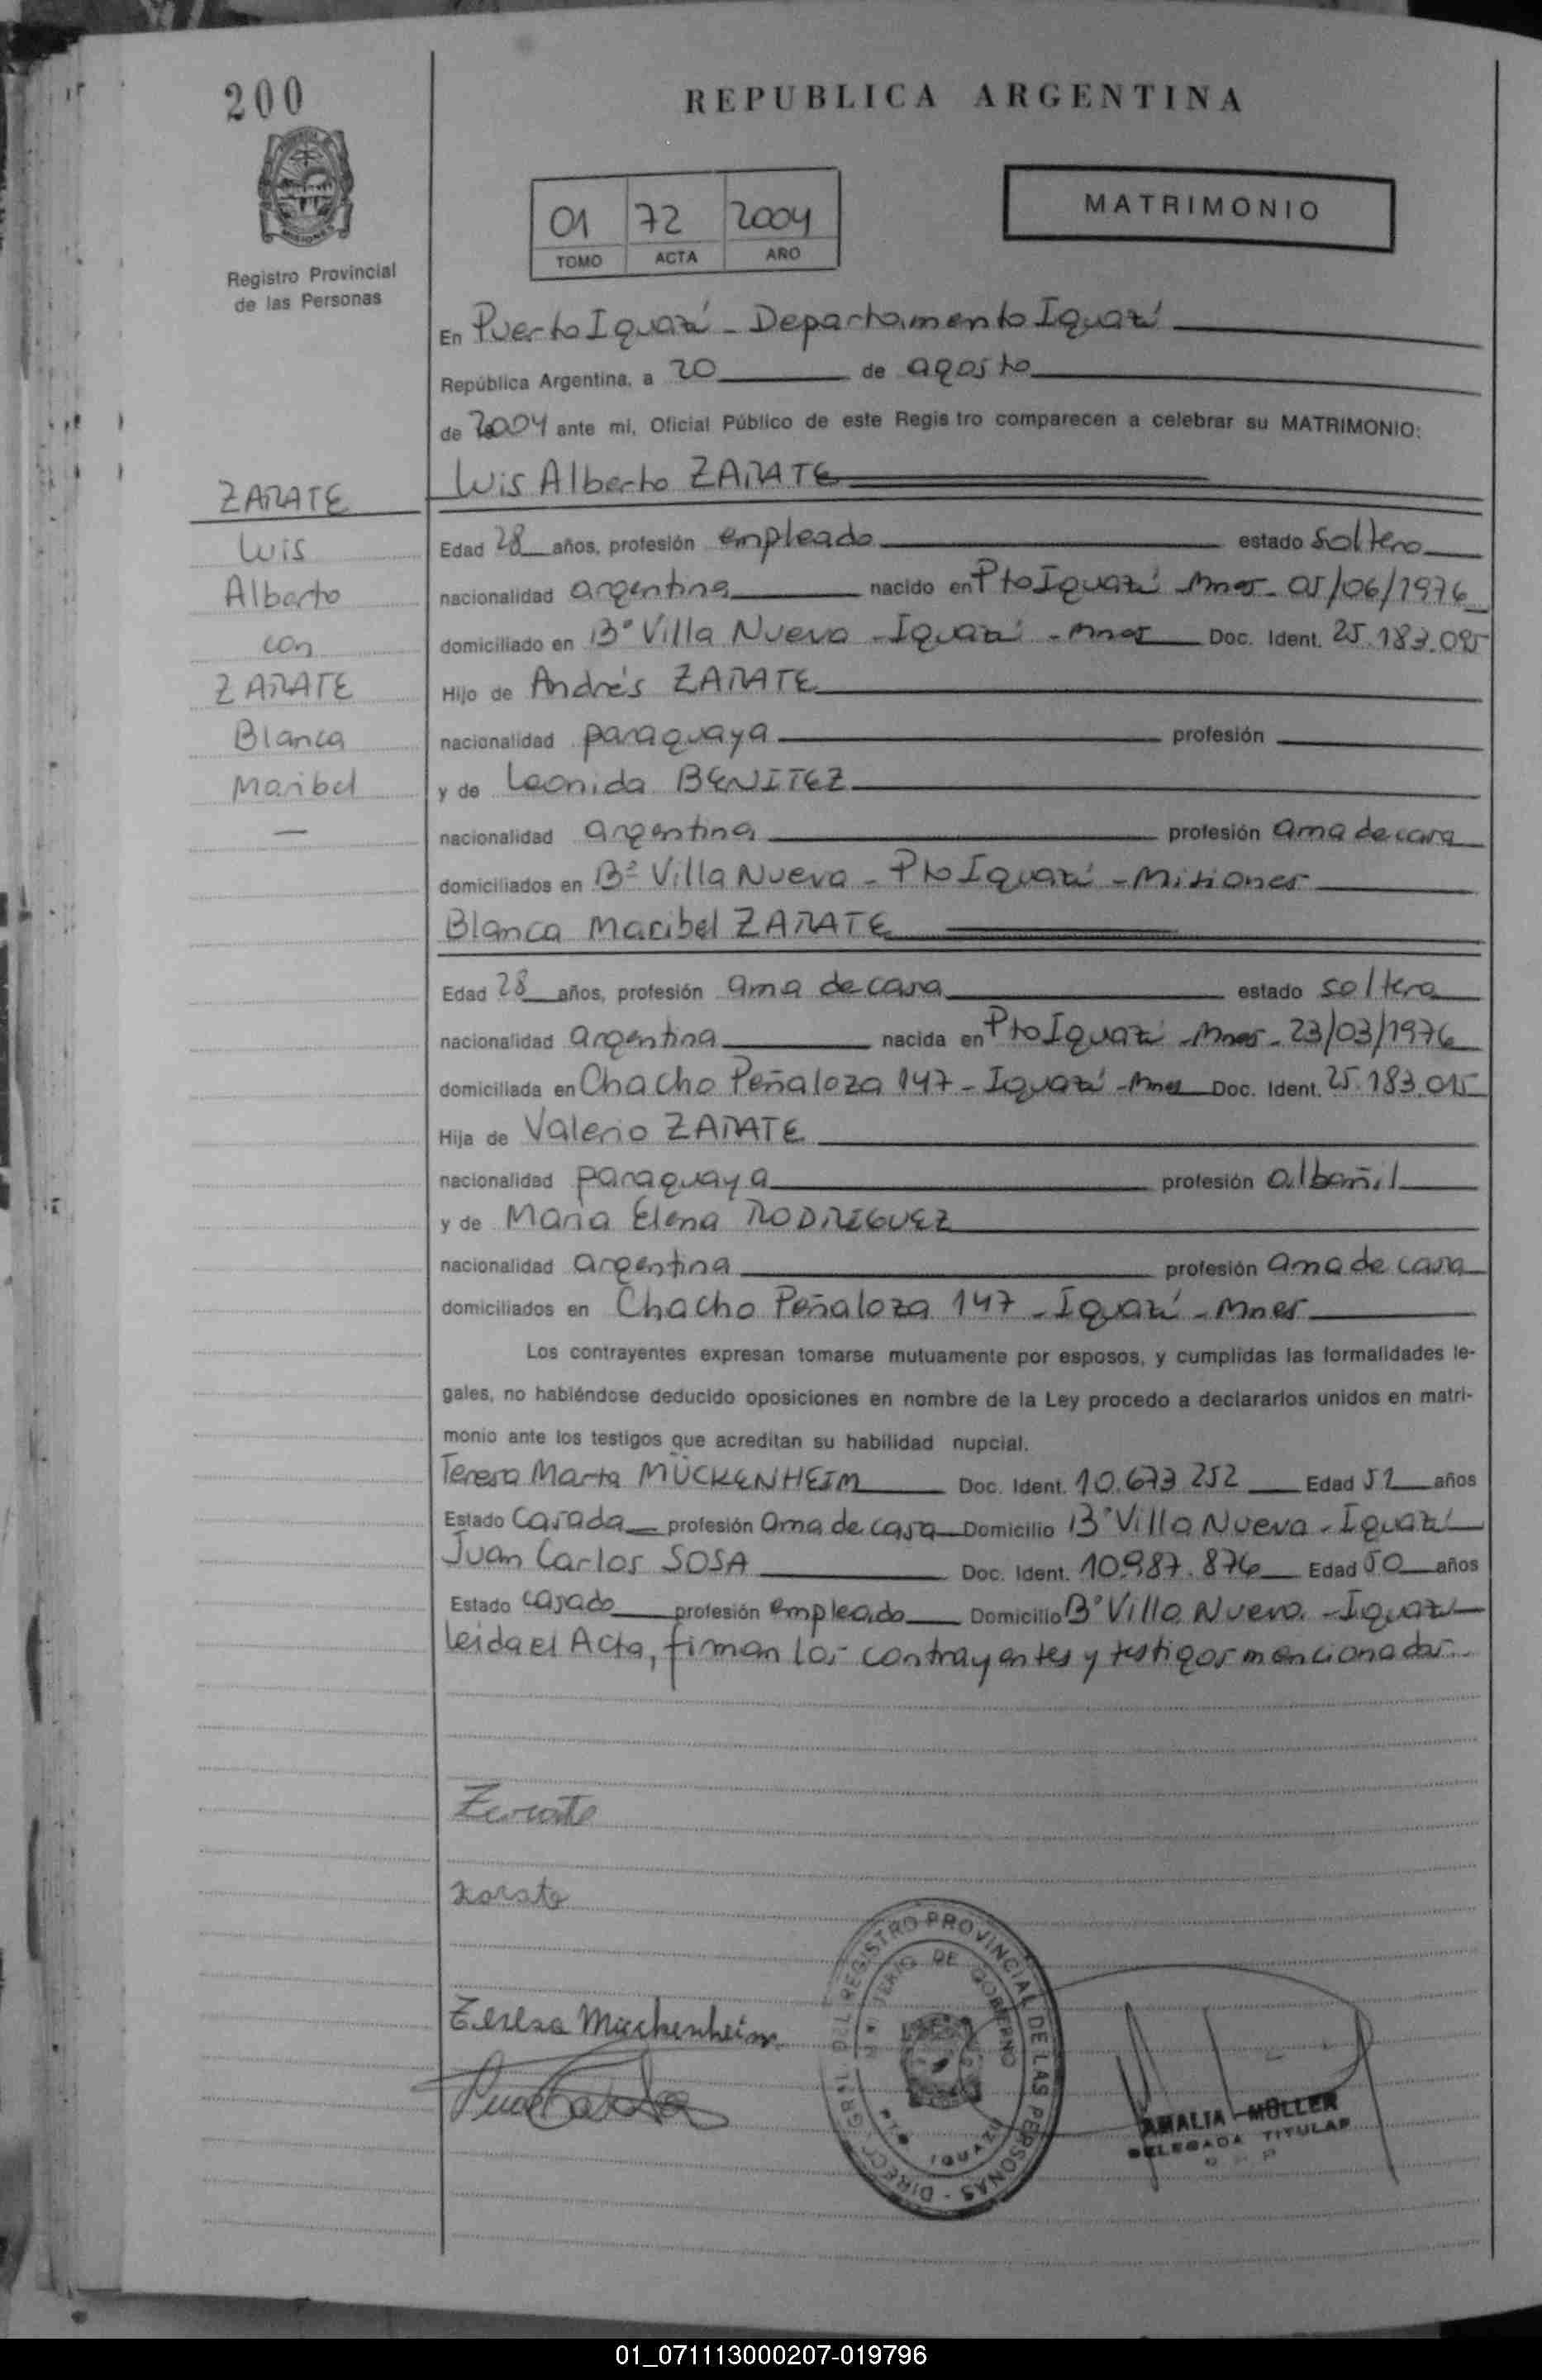 200
REPUBLICA ARGENTINA
MATRIMONIO
01 72 2004
TOMO ACTA AÑO
Registro Provincial
de las Personas
En Puerto Iguazú - Departamento Iguazú
República Argentina, a 20 de agosto
de 2004 ante mi, Oficial Público de este Regis tro comparecen a celebrar su MATRIMONIO:
Luis Alberto ZARATE
ZARATE
Luis
Alberto
con
ZARATE
Blanca
Maribel
Edad 28 años, profesión empleado estado soltero
nacionalidad argentina nacido en Pto Iguazú - Mnes - 05/06/1976
domiciliado en B° Villa Nueva - Iguazú - Mnes Doc. Ident. 25.183.095
Hijo de Andrés ZARATE
nacionalidad paraguaya profesión
y de Leonida BENITEZ
nacionalidad argentina profesión ama de casa
domiciliados en B° Villa Nueva - Pto Iguazú - Misiones
Blanca Maribel ZARATE
Edad 28 años, profesión ama de casa estado soltera
nacionalidad argentina nacida en Pto Iguazú - Mnes - 23/03/1976
domiciliada en Chacho Peñaloza 147 - Iguazú - Mnes Doc. Ident. 25.183.015
Hija de Valerio ZARATE
nacionalidad paraguaya profesión albañil
y de Maria Elena RODRIGUEZ
nacionalidad argentina profesión ama de casa
domiciliados en Chacho Peñaloza 147 - Iguazú - Mnes
Los contrayentes expresan tomarse mutuamente por esposos, y cumplidas las formalidades le-
gales, no habiéndose deducido oposiciones en nombre de la Ley procedo a declararlos unidos en matri-
monio ante los testigos que acreditan su habilidad nupcial.
Teresa Marta MÜCKENHEIM Doc. Ident. 10.673.252 Edad 51 años
Estado casada profesión ama de casa Domicilio B° Villa Nueva - Iguazú
Juan Carlos SOSA Doc. Ident. 10.987.876 Edad 50 años
Estado casado profesión empleado Domicilio B° Villa Nueva - Iguazú
Leida el Acta, firman los contrayentes y testigos mencionados.
Zarate
Zarate
Teresa Muckenheim
DIRECC. GRAL. DEL REGISTRO PROVINCIAL DE LAS PERSONAS
MINISTERIO DE GOBIERNO
PTO. IGUAZU
AMALIA MÜLLER
DELEGADA TITULAR
01_071113000207-019796